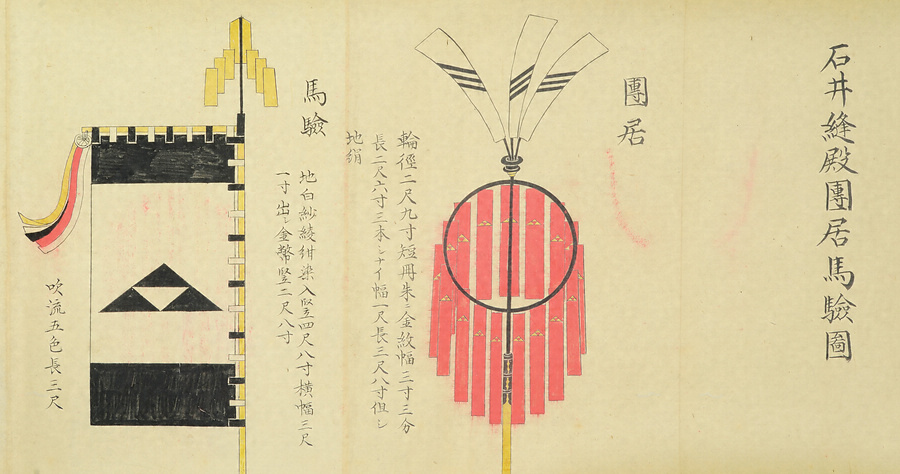 石井縫殿團居馬驗圖
團居
輪徑二尺九寸短冊朱ニ金紋幅三寸三分
長二尺六寸三本シナイ幅一尺長三尺八寸但シ
地絹
馬驗
地白紗綾紺染入竪四尺八寸横幅三尺
一寸出シ金幣竪二尺八寸
吹流五色長三尺